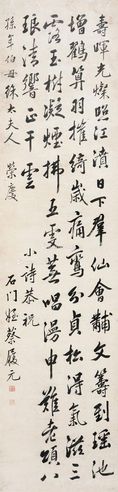 壽暉光燦照江濆日下羣仙會黼文籌到瑤池
增鶴算羽摧綺歲痛鸞分貞松得氣滋三
露玉樹凝煙拂五雲蕪唱漫申難老頌八
琅清響正干雲
小詩恭祝
孫年伯母徐太夫人 榮慶
石门姪蔡履元